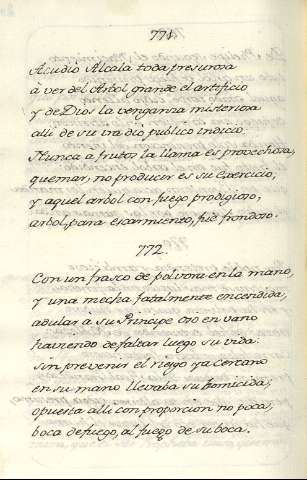 771.
Acudió Alcala toda presurosa
à ver del Arbol grande el artificio
y de Dios la venganza misteriosa
alli de su ira dio publico indicio.
Nunca a frutos la llama es provechosa,
quemar, no producir es su exercicio,
y aquel arbol con fuego prodigioso,
arbol, para escarmiento, fué frondoso.
772.
Con un frasco de polvora en la mano,
y una mecha fatalmente encendida,
adular à su Principe osó en vano
haviendo de faltar luego su vida.
sin prevenir el riesgo ya cercano
en su mano llevaba su homicida;
opuesta alli con proporcion no poca,
boca de fuego, al fuego de su boca.